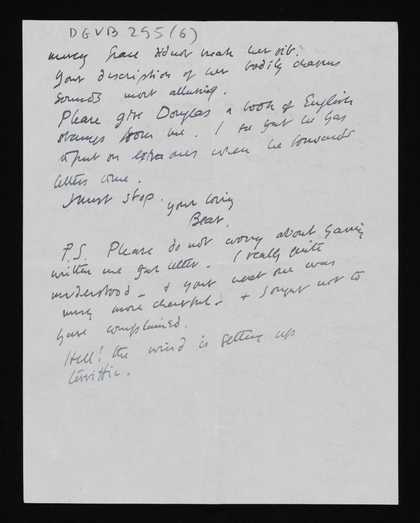 DGVB 295(6)
mercy Grace did not break her rib.
Your description of her bodily charms
sounds most alluring.
Please give Douglas a book of English
stamps from me. I see that he has
to put on extra ones when he forwards
letters to me.
I must stop.
your loving
Bear.
P.S. Please do not worry about having
written me that letter. I really quite
understood _ & your next one was
much more cheerful _ & I ought not to
have complained.
Hell! the wind is getting up
terrific.